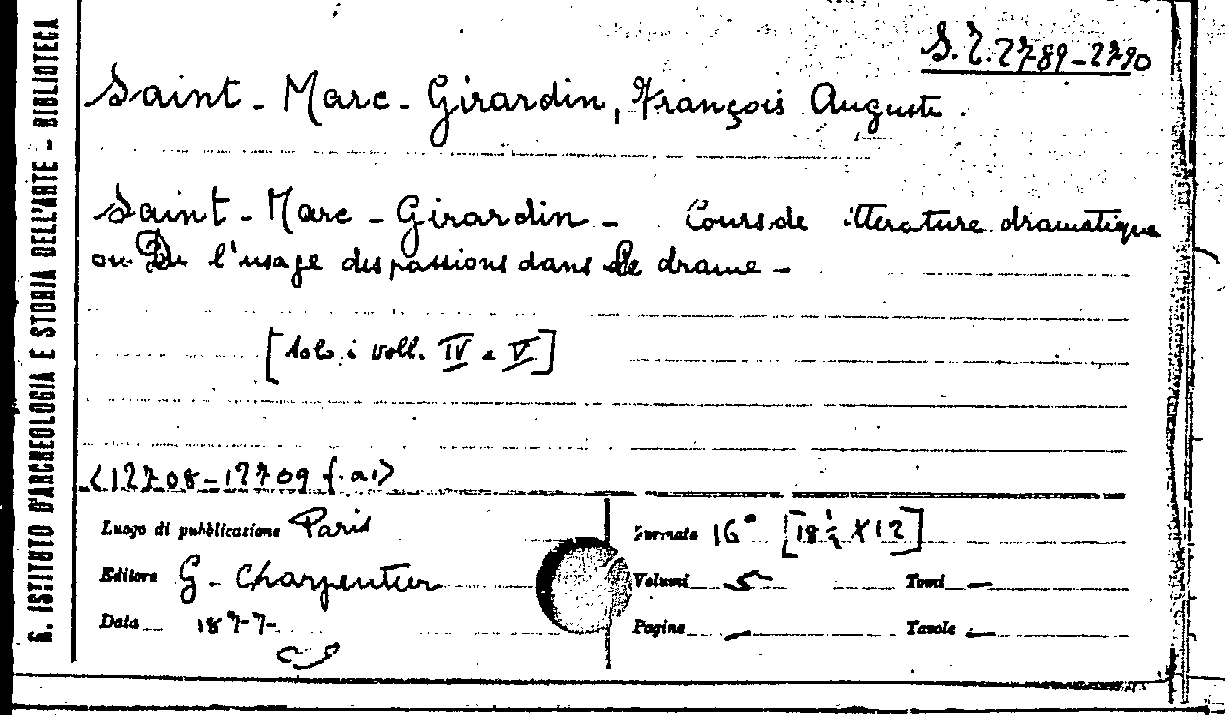 S.T. 2789-2790
Saint-Marc-Girardin, François Auguste.
Saint-Marc-Girardin - Cours de litterature dramatique
ou De l'usage des passions dans le drame -
[solo i voll. IV e V]
<12708-12709 f.a.>
Luogo di pubblicazione Paris
Formato 16° [18½ X 12]
Editore G. Charpentier
Volumi 5 Tomi —
Data 1877
Pagine — Tavole —
R. ISTITUTO D'ARCHEOLOGIA E STORIA DELL'ARTE - BIBLIOTECA